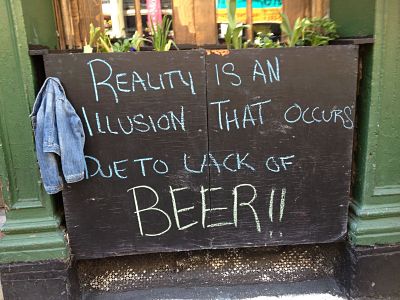 REALITY IS AN
ILLUSION THAT OCCURS
DUE TO LACK OF
BEER!!